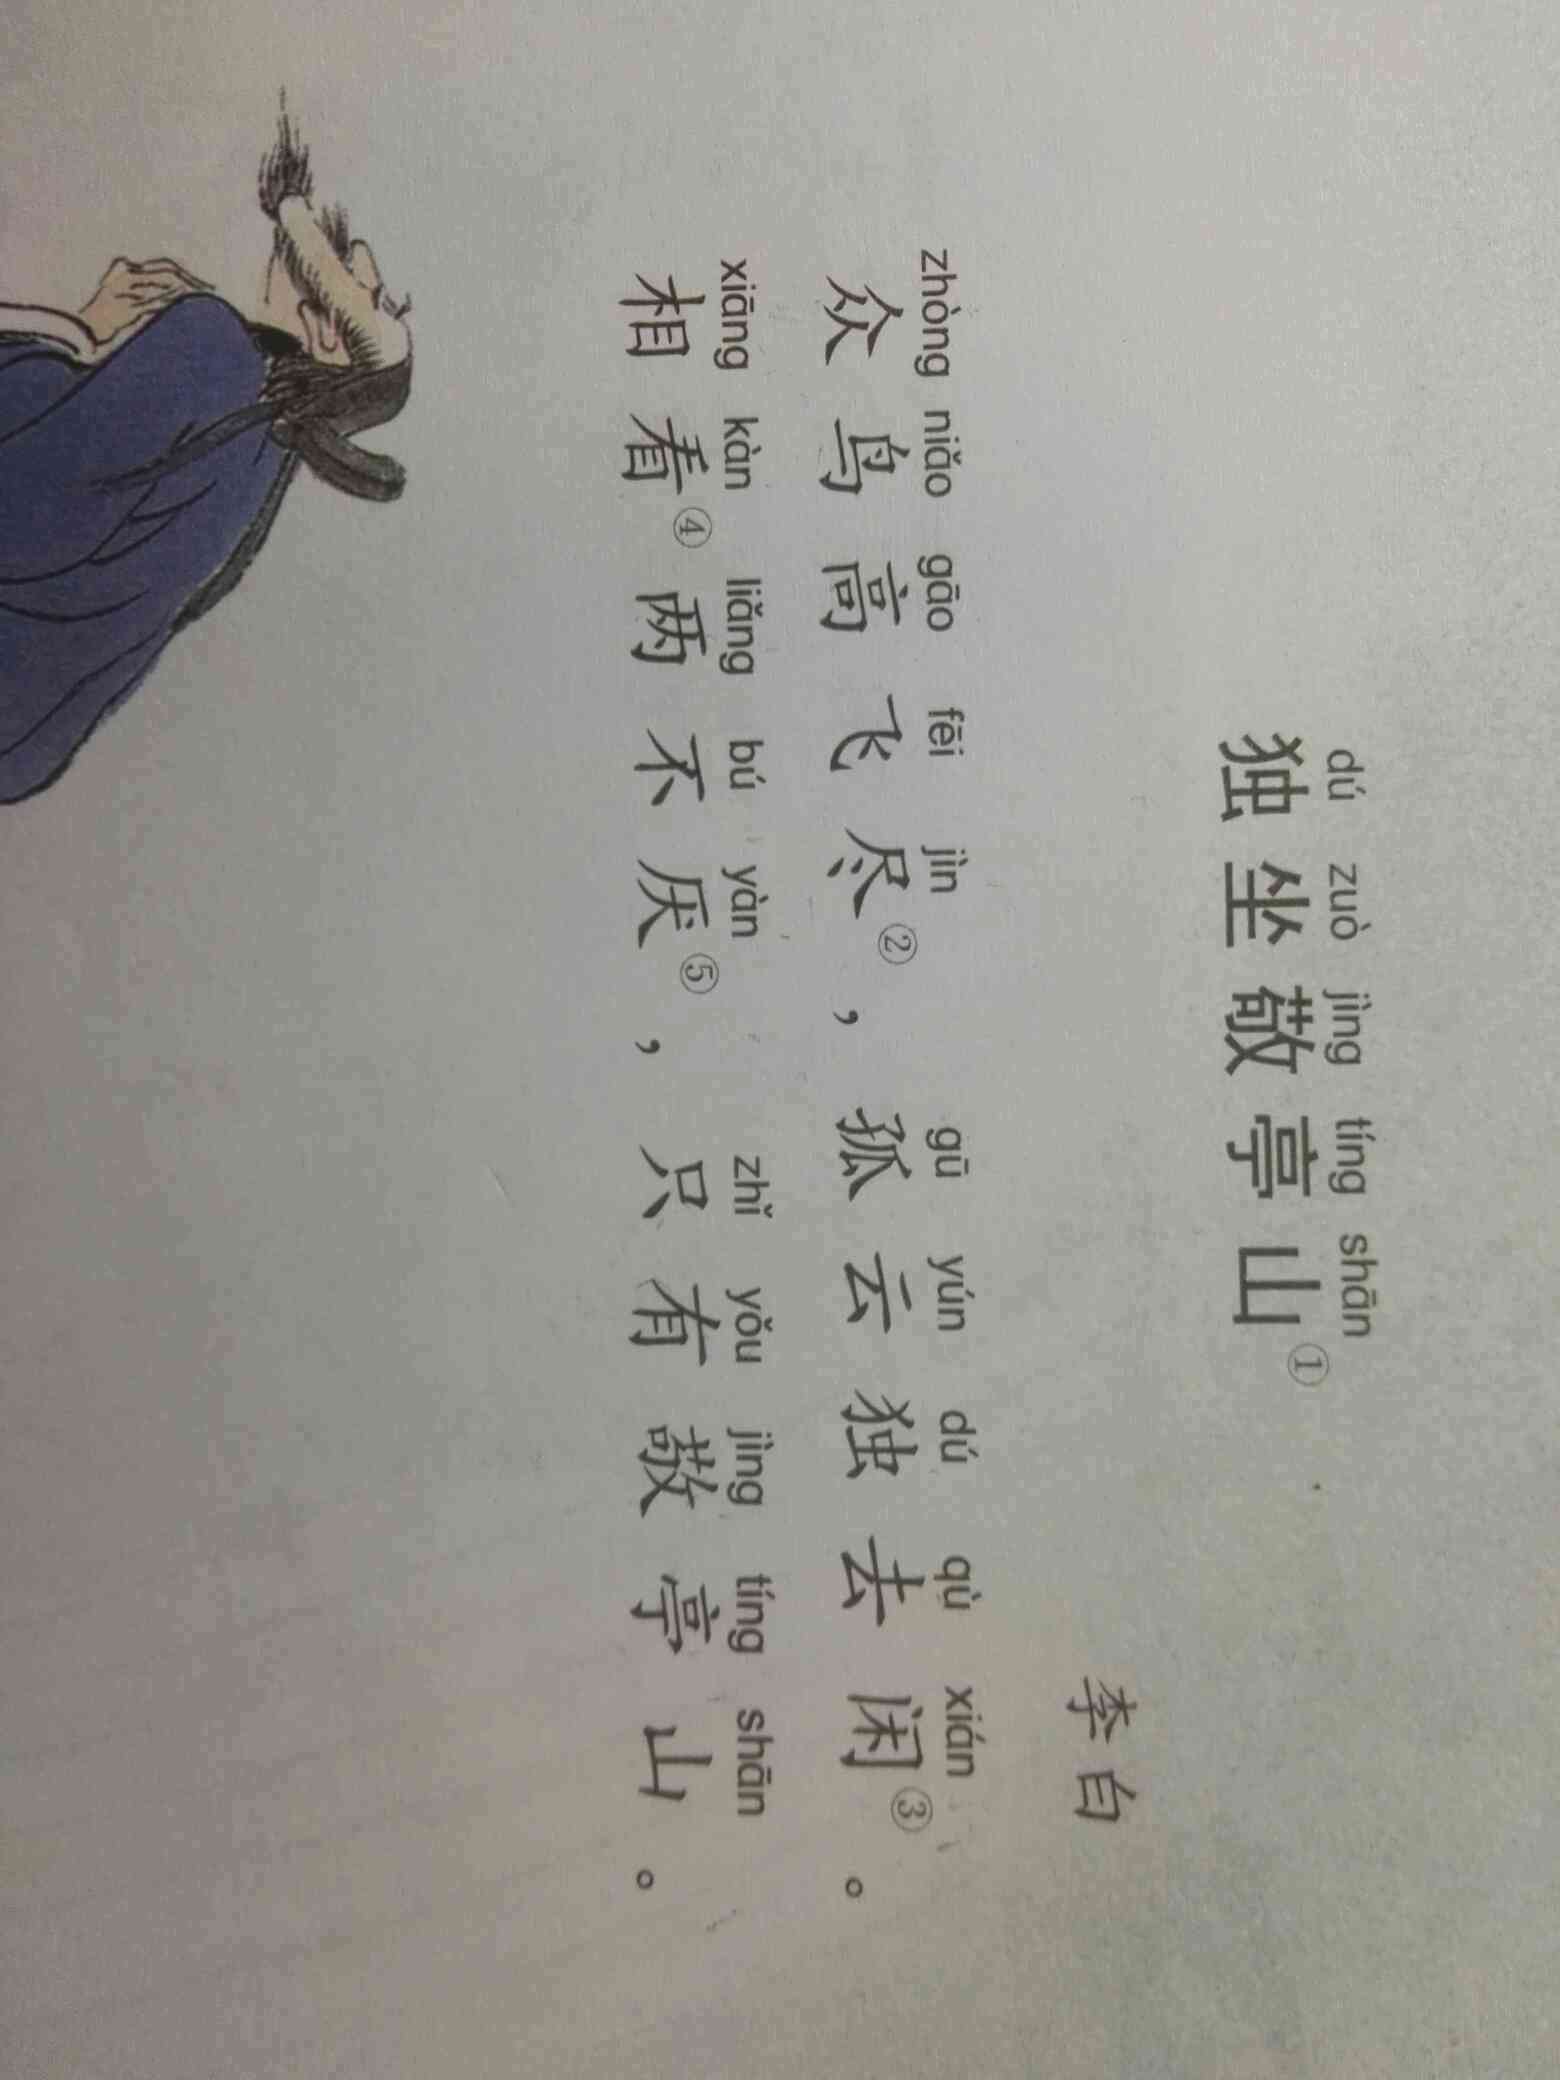 dú zuò jìng tíng shān
独坐敬亭山①
李白
zhòng niǎo gāo fēi jìn gū yún dú qù xián
众鸟高飞尽②，孤云独去闲③。
xiāng kàn liǎng bú yàn zhǐ yǒu jìng tíng shān
相看④两不厌⑤，只有敬亭山。